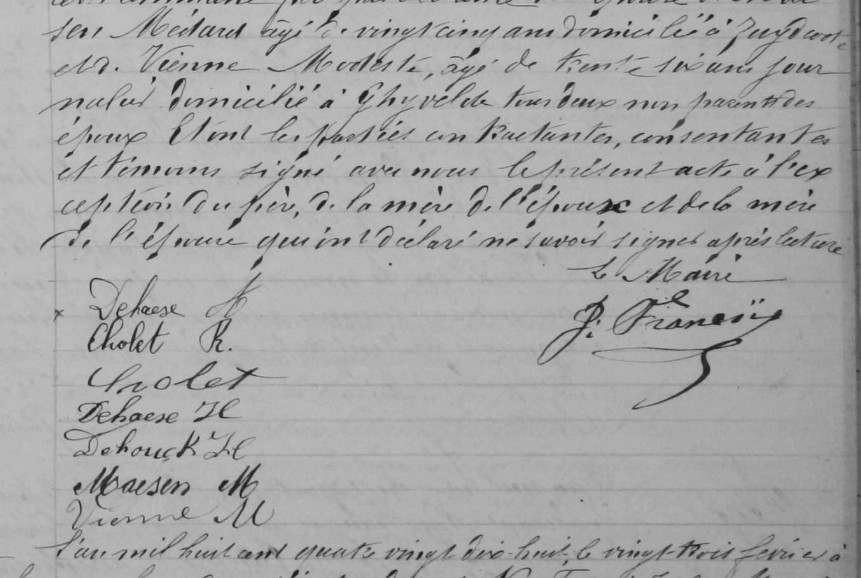 sen Médard âgé de vingt cinq ans domicilié à Zuydcoote
et d. Vienne Modeste, âgé de trente six ans jour
nalier domicilié à Ghyvelde tous deux non parents des
époux Et ont les parties contractantes, consentantes
et témoins signé avec nous le présent acte à l'ex
ception du père, de la mère de l'époux et de la mère
de l'épouse qui ont déclaré ne savoir signer après lecture
Le Maire
x Dehaese A
Cholet R.
Cholet
Dehaese H
Dehouck H
Maesen M
Vienne M
L'an mil huit cent quatre vingt dix-huit, le vingt trois février à